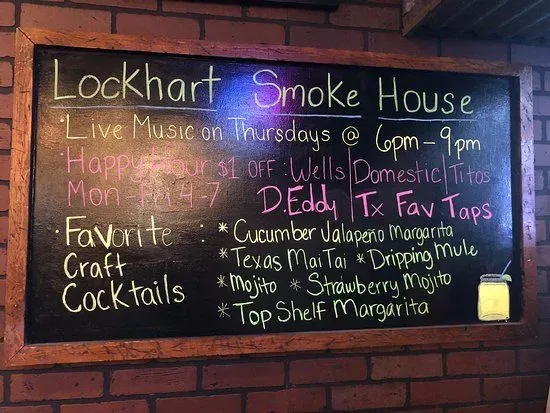 Lockhart Smoke House
·Live Music on Thursdays @ 6pm-9pm
·Happy Hour $1 off: Wells|Domestic|Titos
Mon-Fri 4-7 D.Eddy|Tx Fav Taps
·Favorite : *Cucumber Jalapeño Margarita
Craft *Texas Mai Tai *Dripping Mule
Cocktails *Mojito *Strawberry Mojito
*Top Shelf Margarita